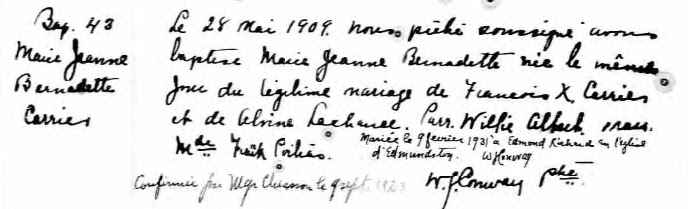 Bap. 43
Marie Jeanne
Bernadette
Carrier
Le 28 Mai 1909. Nous, prêtre soussigné avons
baptisé Marie Jeanne Bernadette née le même
jour du légitime mariage de Francois X. Carrier
et de Alvina Lachance. Parr. Willie Albert, marr.
Mde
Mariée le 9 février 1931 à Edmond Richard en l'église
d'Edmundston. WJConway
Confirmée par Mgr Chiasson le 9 sept. 1923
W. J. Conway ptre